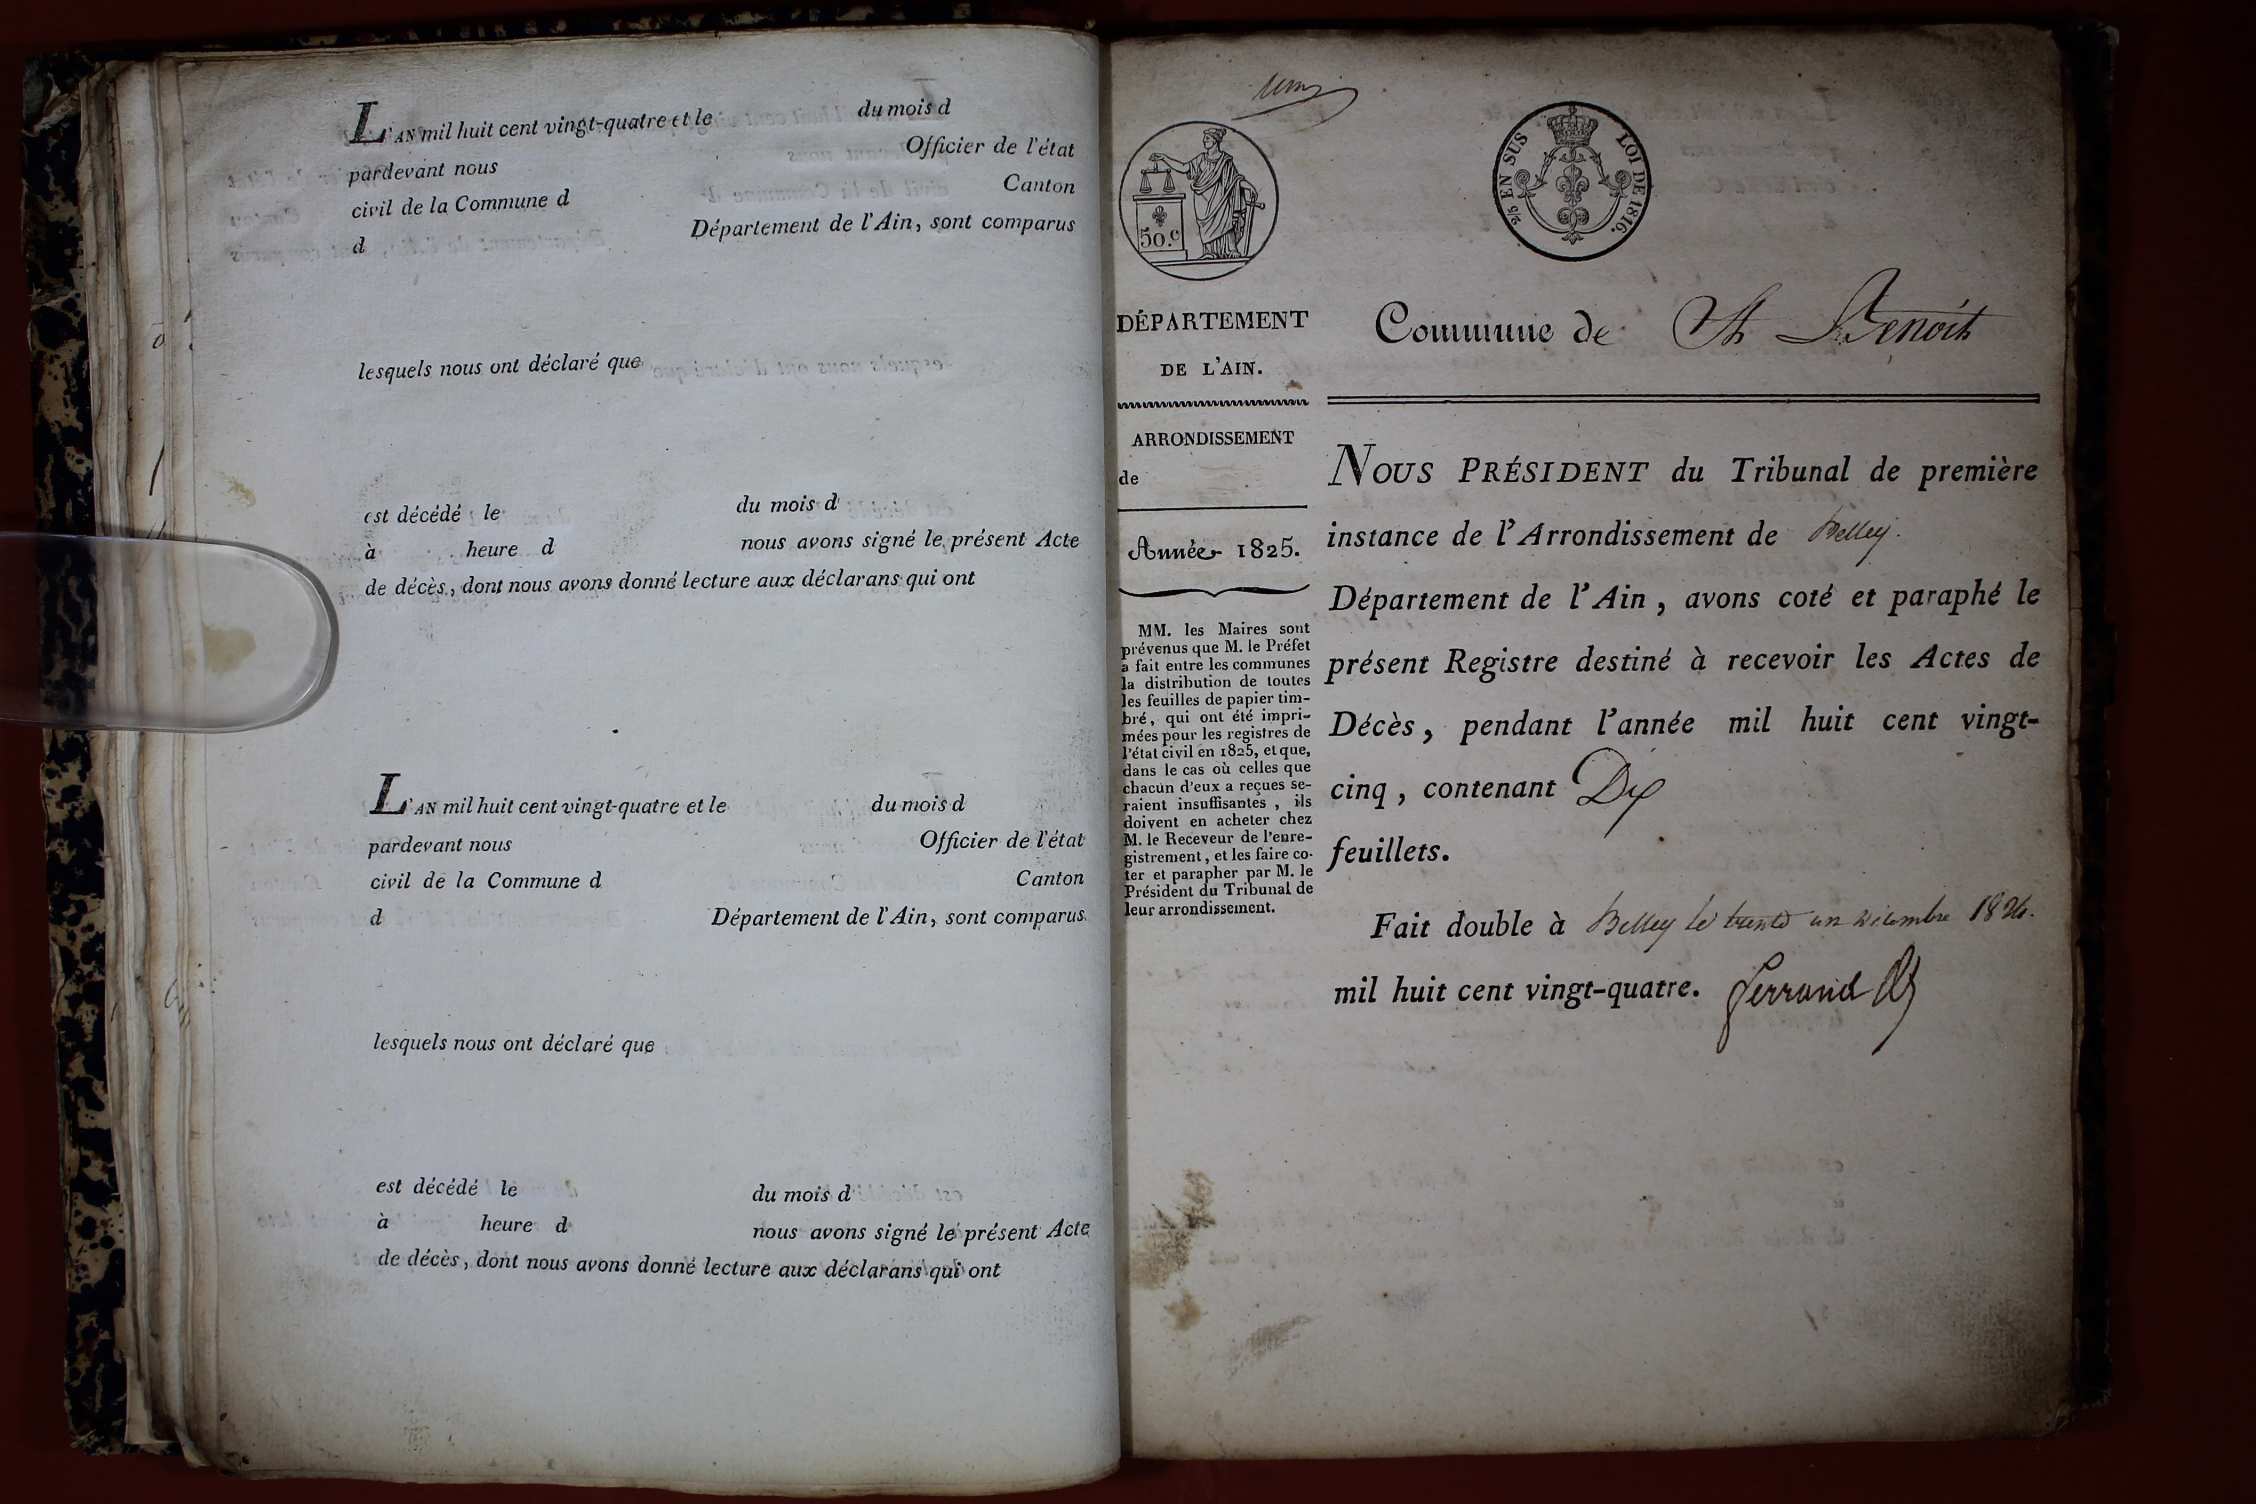 L'AN mil huit cent vingt-quatre et le du mois d
pardevant nous Officier de l'état
civil de la Commune d Canton
d Département de l'Ain, sont comparus
lesquels nous ont déclaré que
est décédé le du mois d
à heure d nous avons signé le présent Acte
de décès, dont nous avons donné lecture aux déclarans qui ont
L'AN mil huit cent vingt-quatre et le du mois d
pardevant nous Officier de l'état
civil de la Commune d Canton
d Département de l'Ain, sont comparus
lesquels nous ont déclaré que
est décédé le du mois d
à heure d nous avons signé le présent Acte
de décès, dont nous avons donné lecture aux déclarans qui ont
50.c
2/5 EN SUS LOI DE 1816.
DÉPARTEMENT
DE L'AIN.
ARRONDISSEMENT
de
Année 1825.
MM. les Maires sont
prévenus que M. le Préfet
a fait entre les communes
la distribution de toutes
les feuilles de papier tim-
bré, qui ont été impri-
mées pour les registres de
l'état civil en 1825, et que,
dans le cas où celles que
chacun d'eux a reçues se-
raient insuffisantes, ils
doivent en acheter chez
M. le Receveur de l'enre-
gistrement, et les faire co-
ter et parapher par M. le
Président du Tribunal de
leur arrondissement.
Commune de St Benoit
NOUS PRÉSIDENT du Tribunal de première
instance de l'Arrondissement de Belley.
Département de l'Ain, avons coté et paraphé le
présent Registre destiné à recevoir les Actes de
Décès, pendant l'année mil huit cent vingt-
cinq, contenant Dix
feuillets.
Fait double à Belley le trente un décembre 1824.
mil huit cent vingt-quatre. Ferrand